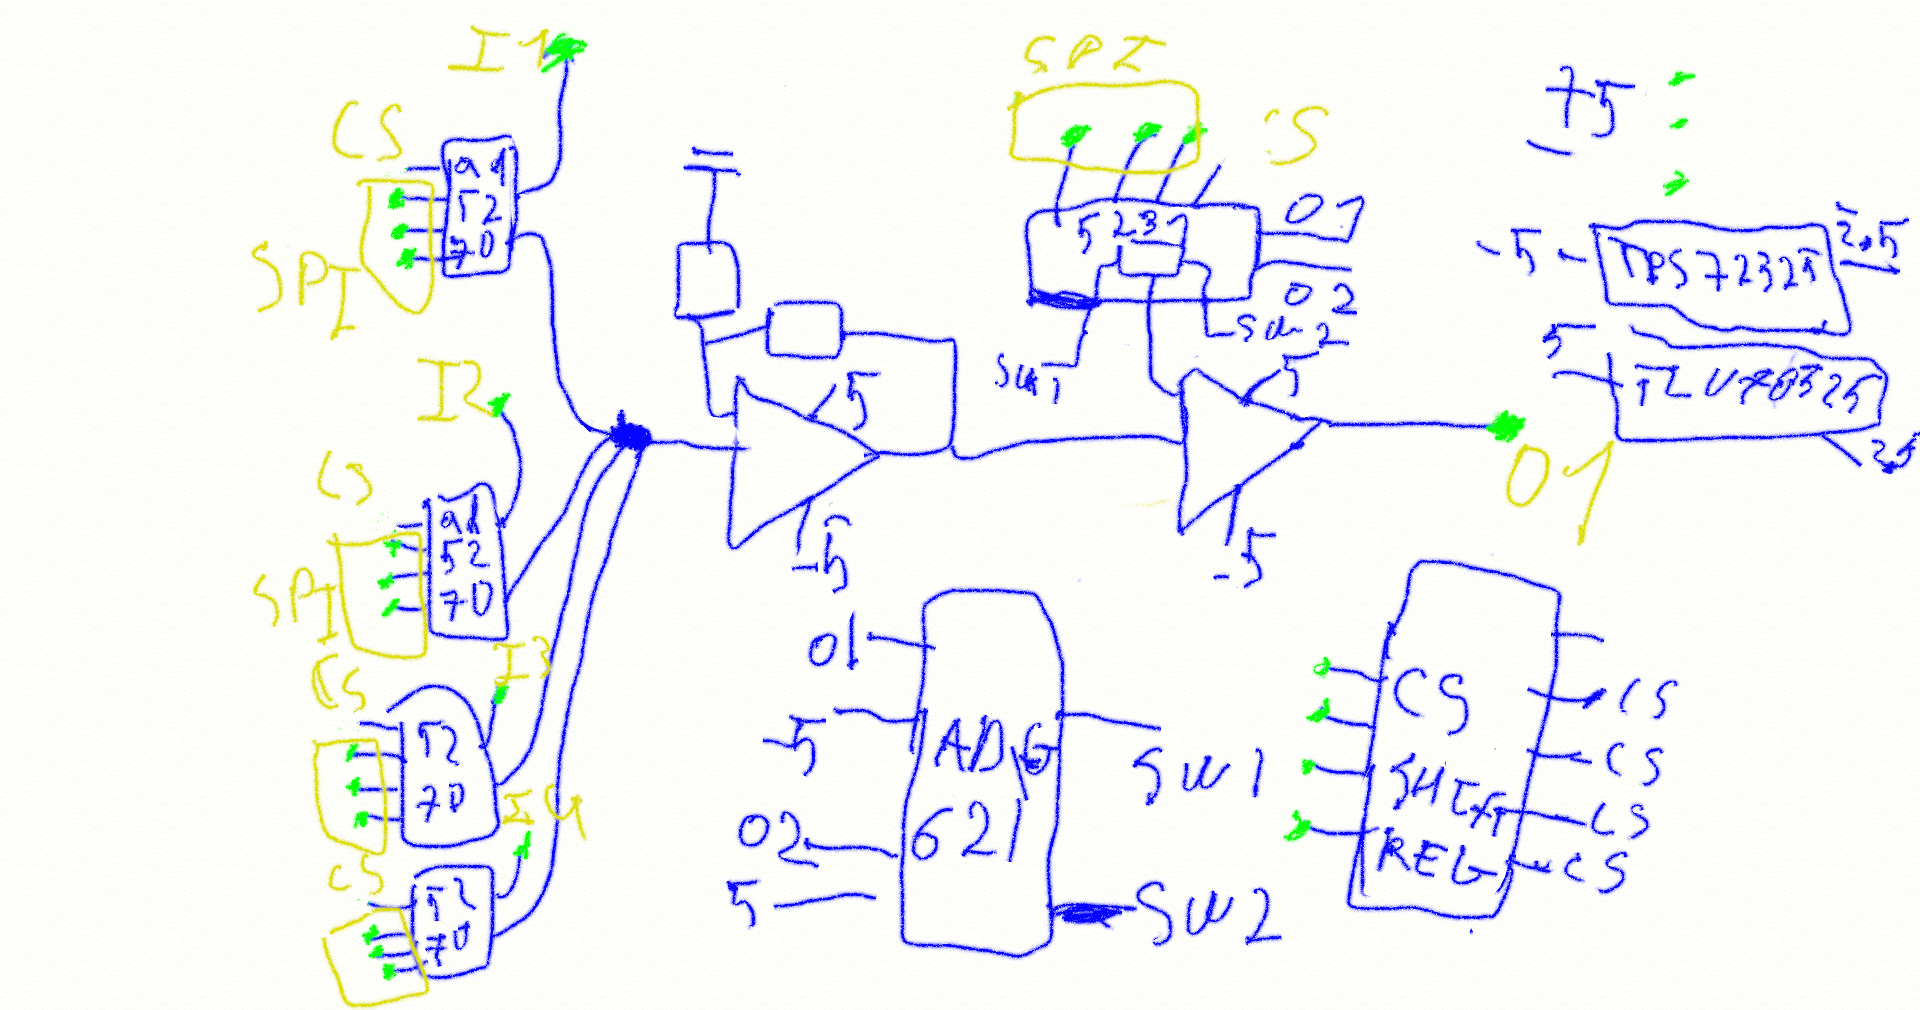 I1
CS
ad
52
70
SPI
I2
CS
ad
52
70
SPI
I3
CS
52
70
I4
CS
52
70
5
-5
SPI
CS
5231
01
02
SW1
SW2
5
-5
01
+5
-
-5
TPS72325
2.5
5
TLV70325
2.5
01
-5
02
5
ADG
621
SW1
SW2
CS
SHIFT
REG
CS
CS
CS
CS